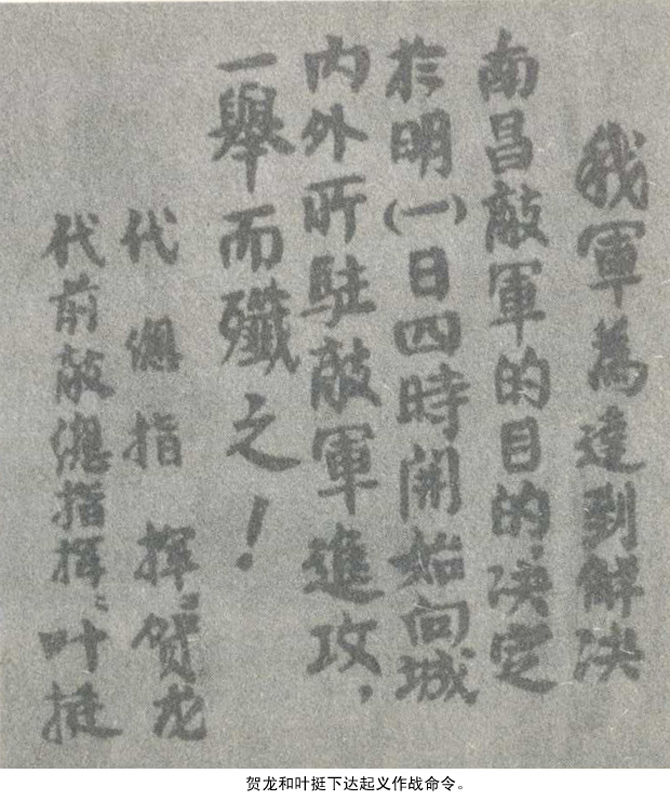 我軍為達到解決
南昌敵軍的目的，决定
於明(一)日四時開始向城
内外所駐敵軍進攻，
一舉而殲之！
代總指揮：贺龙
代前敵總指揮：叶挺
贺龙和叶挺下达起义作战命令。